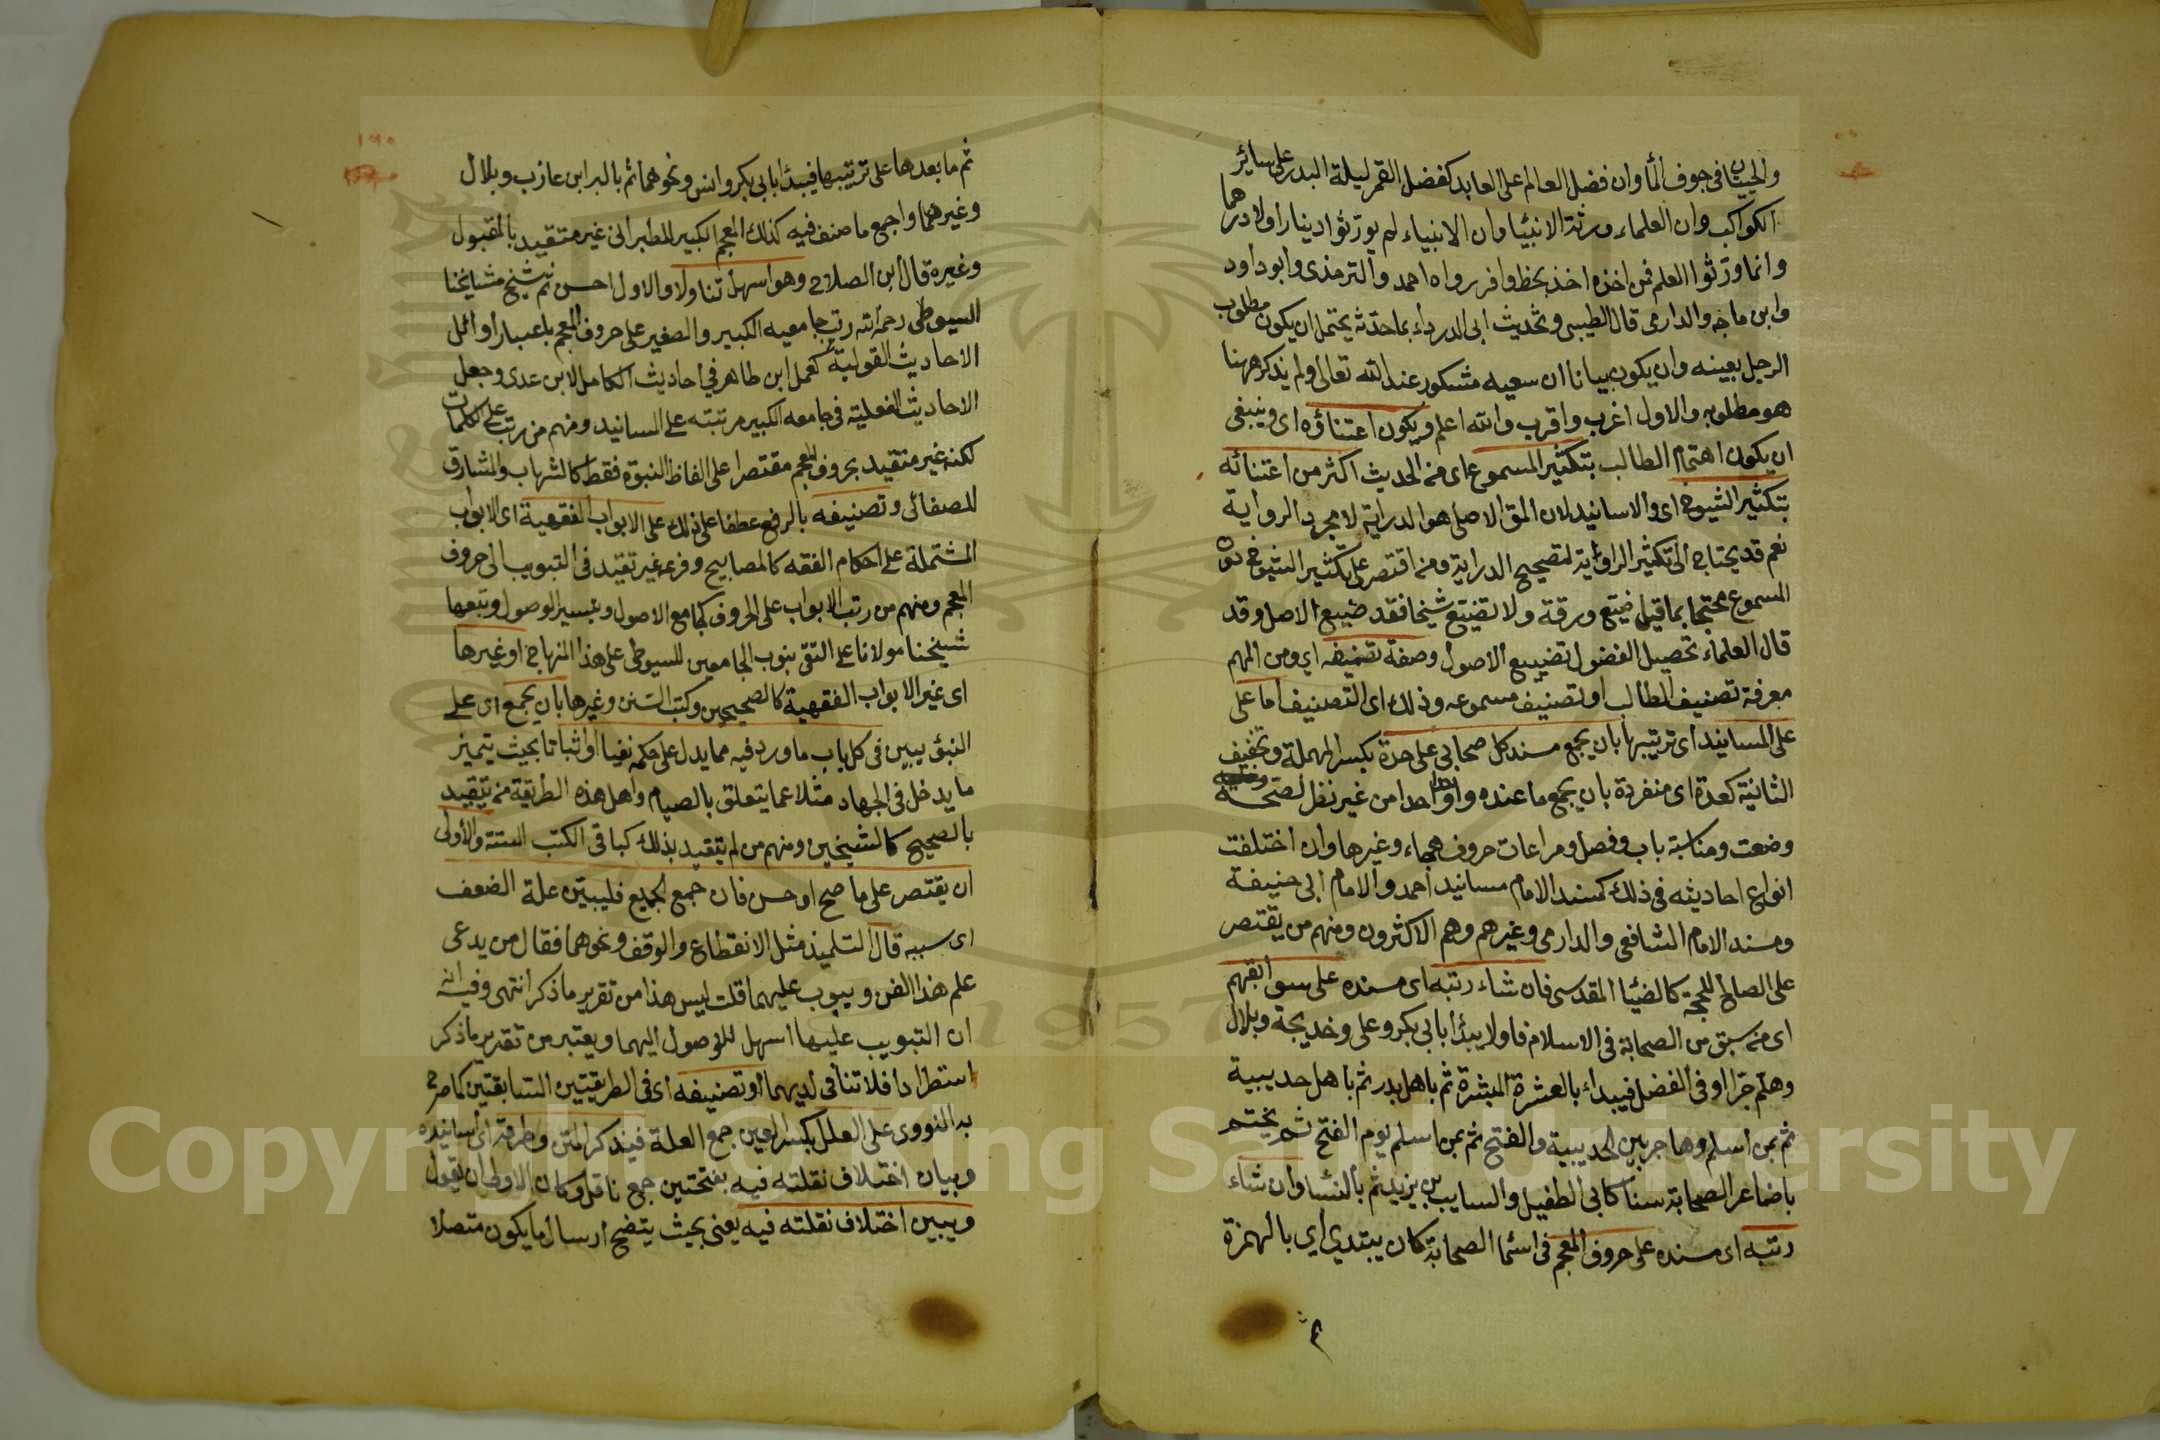 والحيتان في جوف الما وان فضل العالم على العابد كفضل القمر ليلة البدر على سائر
الكواكب وان العلماء ورثة الانبيا وان الانبياء لم يورثوا دينارا ولا درهما
وانما ورثوا العلم فمن اخذه اخذ بحظ وافر رواه احمد والترمذى وابو داود
وابن ماجه والدارمى قال الطيبى وتحديث ابى الدرداء بما حدثه يحتمل ان يكون مطلوب
الرجل بعينه وان يكون بيانا ان سعيه مشكور عند الله تعالى ولم يذكر ههنا
هو مطلوبه والاول اغرب واقرب والله اعلم ويكون اعتناؤه اى وينبغى
ان يكون اهتمام الطالب بتكثير المسموع اى من الحديث اكثر من اعتنائه
بتكثير الشيوخ اى والاسانيد لان المق الاصلى هو الدراية لا مجرد الرواية
نعم قد يحتاج الى تكثير الرواية لتصحيح الدراية ومن اقتصر على تكثير الشيوخ دون
المسموع محتجا بما قيل ضيع ورقة ولا تضيع شيخا فقد ضيع الاصل وقد
قال العلماء تحصيل الفضول تضييع الاصول وصفة تصنيفه اى ومن المهم
معرفة تصنيف الطالب او تصنيف مسموعه وذلك اى التصنيف اما على
على المسانيد اى ترتيبها بان يجمع مسند كل صحابي على حدة بكسر المهملة وتخفيف
الثانية كعدة اى منفردة بان يجمع ما عنده واحدا واحدا من غير نظر لصحة
وضعت ومناسبة باب وفصل ومراعات حروف هجاء وغيرها وان اختلفت
انواع احاديثه فى ذلك كمسند الامام مسانيد احمد والامام ابى حنيفة
ومسند الامام الشافعى والدارمى وغيرهم وهم الاكثرون ومنهم من يقتصر
على الصالح للحجة كالضيا المقدسى فان شاء رتبه اى مسنده على سوابقهم
اى من سبق من الصحابة فى الاسلام فاولا يبدأ بابى بكر وعلى وخديجة وبلال
وهلم جرا او فى الفضل فيبداء بالعشرة المبشرة ثم باهل بدر ثم باهل حديبية
ثم بمن اسلم وهاجر بين الحديبية والفتح ثم بمن اسلم يوم الفتح ثم يختم
باصاغر الصحابة سنا كابى الطفيل والسايب بن يزيد ثم بالنسا وان شاء
رتبه اى مسنده على حروف المعجم فى اسما الصحابة كان يبتدي اي بالهمزة
ثم ما بعدها على ترتيبها فيبدأ بابى بكر وانس ونحوهما ثم بالبرا بن عازب وبلال
وغيرهما واجمع ما صنف فيه كذلك المعجم الكبير للطبرانى غير متقيد بالمقبول
وغيره قال ابن الصلاح وهو اسهل تناولا والاول احسن ثم شيخ مشايخنا
السيوطى رحمه الله رتب جامعيه الكبير والصغير على حروف المعجم باعتبار اوائل
الاحاديث القولية كعمل ابن طاهر في احاديث الكامل لابن عدى وجعل
الاحاديث الفعلية فى جامعه الكبير مرتبته على المسانيد ومنهم من رتب على الكلمات
لكنه غير متقيد بحروف المعجم مقتصرا على الفاظ النبوة فقط كالشهاب والمشارق
للصغانى وتصنيفه بالرفع عطفا على ذلك على الابواب الفقهية اى الابواب
المشتملة على احكام الفقه كالمصابيح وفرعه غير تقيد فى التبويب الى حروف
المعجم ومنهم من رتب الابواب على الحروف كجامع الاصول وتيسير الوصول وتبعها
شيخنا مولانا على التقى بتبويب الجامعين للسيوطى على هذا المنهاج او غيرها
اى غير الابواب الفقهية كالصحيحين وكتب السنن وغيرها بان يجمع اى على
النبؤ يبين فى كل باب ما ورد فيه مما يدل على حكمه نفيا او اثباتا بحيث يتميز
ما يدخل فى الجهاد مثلا عما يتعلق بالصيام واهل هذه الطريقة من يتقيد
بالصحيح كالشيخين ومنهم من لم يتقيد بذلك كباقى الكتب الستة والأولى
ان يقتصر على ما صح او حسن فان جمع الجميع فليبين علة الضعف
اى سببه قال التلميذ مثل الانقطاع والوقف ونحوهما فقال من يدعى
علم هذا الفن ويبوب عليهما قلت ليس هذا من تقرير ما ذكر انتهى وفيه انه
ان التبويب عليها اسهل للوصول اليهما ويعتبر من تقرير ما ذكر
استطرادا فلا تنافى لديهما أو تصنيفه اى فى الطريقتين السابقتين كما صرح
به النووى على العلل بكسر العين جمع العلة فيذكر المتن وطرقه اى اسانيده
وبيان اختلاف نقلته فيه بفتحتين جمع ناقل وكان الاولى ان يقول
ويبين اختلاف نقلته فيه يعنى بحيث يتضح ارسال ما يكون متصلا
Copyright © King Saud University
1957